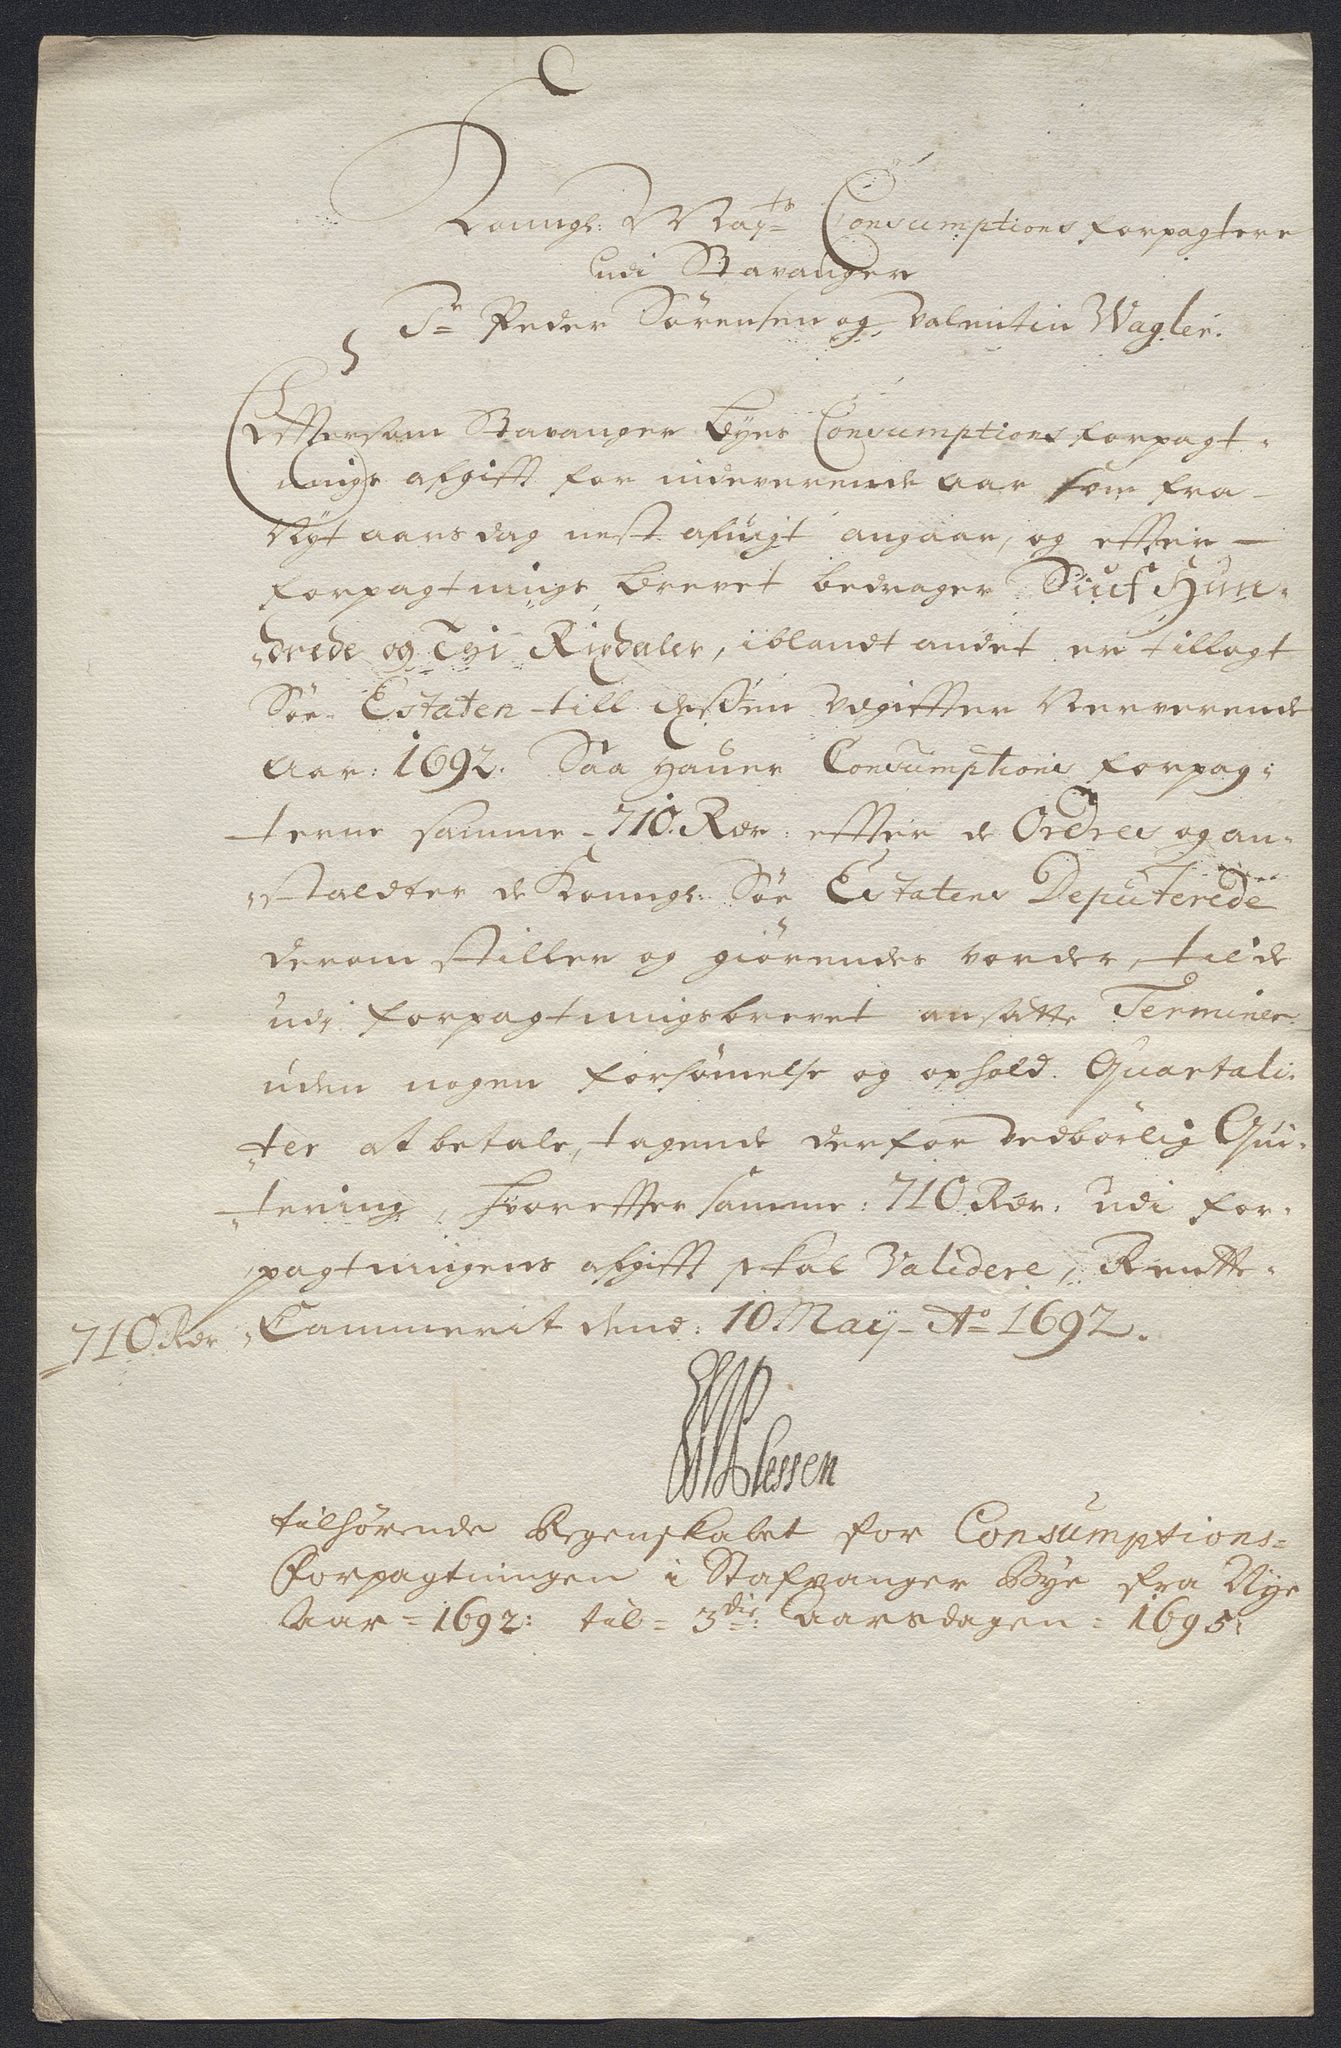 Kongl: May:ts Consumptions forpagtere
udi Stavanger
Sr Peder Sörensen og Valentin Wagler.
Efftersom Stavanger Byes Consumptions forpagt-
nings afgifft for indeverende aar som fra
Nyt aars dag nest afuigt angaar, og effter
forpagtnings brevet bedrager Siuf Hun-
drede og Thi Rixdaler, iblandt andet er tillagt
Söe Estaten till dessen Udgiffter Nerverende
Aar: 1692. Saa hauer Consumptions forpag-
terne samme 710. Rdr: effter de Ordres og an-
staldter de Kongl: Söe Estatens Deputerede
derom stiller og giörendes vorder, til de
udi forpagtningsbrevet ansatte Terminer
uden nogen forsömelse og ophold Quartali-
ter at betale, tagende derfor vedbörlig Qui-
tering, hvoreffter samme: 710 Rdr: udi for-
pagtningens afgifft skal Validere, Rentte-
710 Rdr Cammerit dend: 10 Maij Ao 1692.
Plessen
tilhörende Regenskabet for Consumptions-
forpagtningen i Stafvanger Bye fra Nye
Aar = 1692: til = 3die Aarsdagen = 1695: